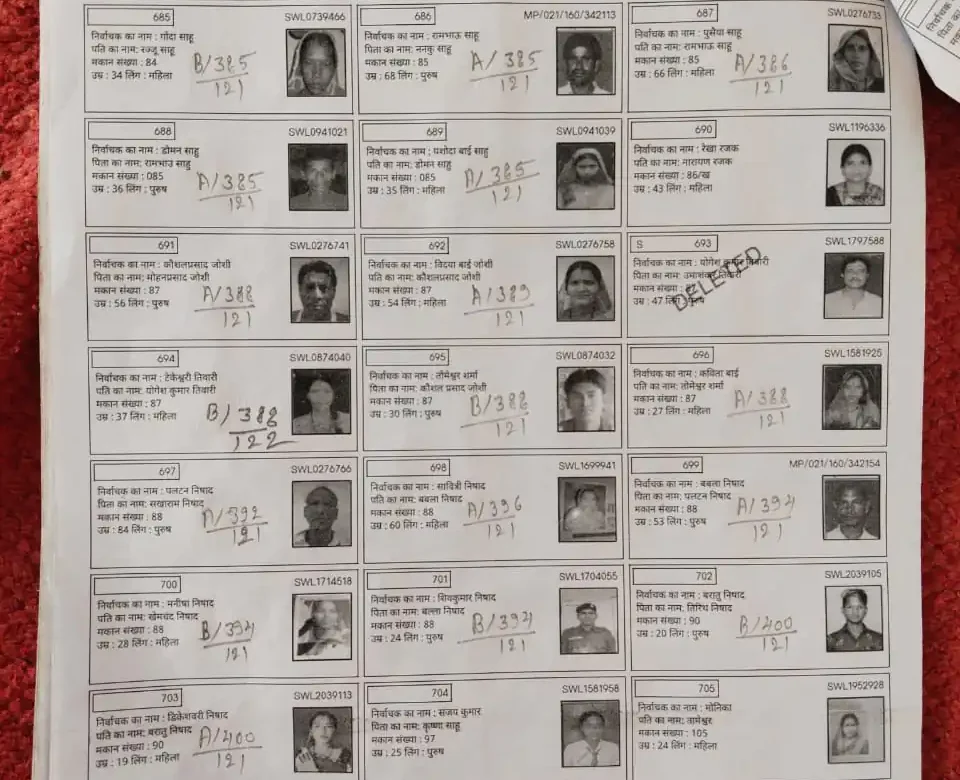 685 SWL0739466
निर्वाचक का नाम : गोंदा साहू
पति का नाम: रज्जू साहू
मकान संख्या : 84
उम्र : 34 लिंग : महिला
B/385
121
686 MP/021/160/342113
निर्वाचक का नाम : रामभाऊ साहू
पिता का नाम: ननकु साहू
मकान संख्या : 85
उम्र : 68 लिंग : पुरुष
A/385
121
687 SWL0276733
निर्वाचक का नाम : पुसैया साहू
पति का नाम: रामभाऊ साहू
मकान संख्या : 85
उम्र : 66 लिंग : महिला
A/386
121
688 SWL0941021
निर्वाचक का नाम : डोमन साहू
पिता का नाम: रामभाउ साहू
मकान संख्या : 085
उम्र : 36 लिंग : पुरुष
A/385
121
689 SWL0941039
निर्वाचक का नाम : यशोदा बाई साहू
पति का नाम: डोमन साहू
मकान संख्या : 085
उम्र : 35 लिंग : महिला
A/385
121
690 SWL1196336
निर्वाचक का नाम : रेखा रजक
पति का नाम: नारायण रजक
मकान संख्या : 86/ख
उम्र : 43 लिंग : महिला
691 SWL0276741
निर्वाचक का नाम : कौशलप्रसाद जोशी
पिता का नाम: मोहनप्रसाद जोशी
मकान संख्या : 87
उम्र : 56 लिंग : पुरुष
A/388
121
692 SWL0276758
निर्वाचक का नाम : विदया बाई जोशी
पति का नाम: कौशलप्रसाद जोशी
मकान संख्या : 87
उम्र : 54 लिंग : महिला
A/389
121
S 693 SWL1797588
निर्वाचक का नाम : योगेश कुमार तिवारी
पिता का नाम: उमाशंकर तिवारी
मकान संख्या : 87
उम्र : 47 लिंग : पुरुष
DELETED
694 SWL0874040
निर्वाचक का नाम : टेकेश्वरी तिवारी
पति का नाम: योगेश कुमार तिवारी
मकान संख्या : 87
उम्र : 37 लिंग : महिला
B/388
122
695 SWL0874032
निर्वाचक का नाम : तोमेश्वर शर्मा
पिता का नाम: कौशल प्रसाद जोशी
मकान संख्या : 87
उम्र : 30 लिंग : पुरुष
B/388
121
696 SWL1581925
निर्वाचक का नाम : कविता बाई
पति का नाम: तोमेश्वर शर्मा
मकान संख्या : 87
उम्र : 27 लिंग : महिला
A/388
121
697 SWL0276766
निर्वाचक का नाम : पलटन निषाद
पिता का नाम: सखाराम निषाद
मकान संख्या : 88
उम्र : 84 लिंग : पुरुष
A/392
121
698 SWL1699941
निर्वाचक का नाम : सावित्री निषाद
पति का नाम: बबला निषाद
मकान संख्या : 88
उम्र : 60 लिंग : महिला
A/396
121
699 MP/021/160/342154
निर्वाचक का नाम : बबला निषाद
पिता का नाम: पलटन निषाद
मकान संख्या : 88
उम्र : 53 लिंग : पुरुष
A/394
121
700 SWL1714518
निर्वाचक का नाम : मनीषा निषाद
पति का नाम: खेमचंद निषाद
मकान संख्या : 88
उम्र : 28 लिंग : महिला
B/394
121
701 SWL1704055
निर्वाचक का नाम : शिवकुमार निषाद
पिता का नाम: बल्ला निषाद
मकान संख्या : 88
उम्र : 24 लिंग : पुरुष
B/394
121
702 SWL2039105
निर्वाचक का नाम : बरातु निषाद
पिता का नाम: तिरिथ निषाद
मकान संख्या : 90
उम्र : 20 लिंग : पुरुष
B/400
121
703 SWL2039113
निर्वाचक का नाम : डिकेशवरी निषाद
पति का नाम: बरातु निषाद
मकान संख्या : 90
उम्र : 19 लिंग : महिला
A/400
121
704 SWL1581958
निर्वाचक का नाम : सजय कुमार
पिता का नाम: कृष्णा साहू
मकान संख्या : 97
उम्र : 25 लिंग : पुरुष
705 SWL1952928
निर्वाचक का नाम : मोनिका
पति का नाम: तामेश्वर
मकान संख्या : 105
उम्र : 24 लिंग : महिला